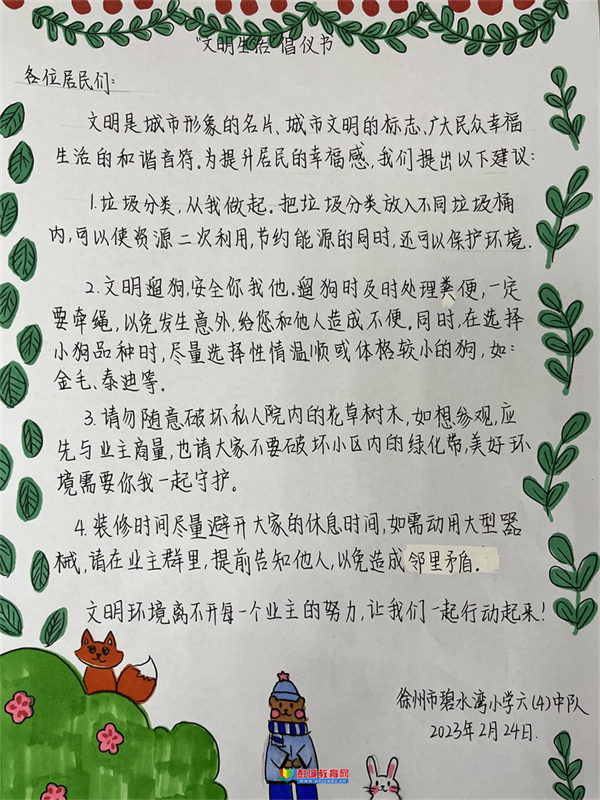 “文明生活”倡仪书
各位居民们:
文明是城市形象的名片、城市文明的标志、广大民众幸福
生活的和谐音符.为提升居民的幸福感,我们提出以下建议:
1.垃圾分类,从我做起.把垃圾分类放入不同垃圾桶
内,可以使资源二次利用,节约能源的同时,还可以保护环境.
2.文明遛狗,安全你我他.遛狗时及时处理粪便,一定
要牵绳,以免发生意外,给您和他人造成不便,同时,在选择
小狗品种时,尽量选择性情温顺或体格较小的狗,如:
金毛、泰迪等.
3.请勿随意破坏私人院内的花草树木,如想参观,应
先与业主商量,也请大家不要破坏小区内的绿化带,美好环
境需要你我一起守护。
4.装修时间尽量避开大家的休息时间,如需动用大型器
械,请在业主群里,提前告知他人,以免造成邻里矛盾.
文明环境离不开每一个业主的努力,让我们一起行动起来!
徐州市碧水湾小学六(4)中队
2023年2月24日.
彭城教育网